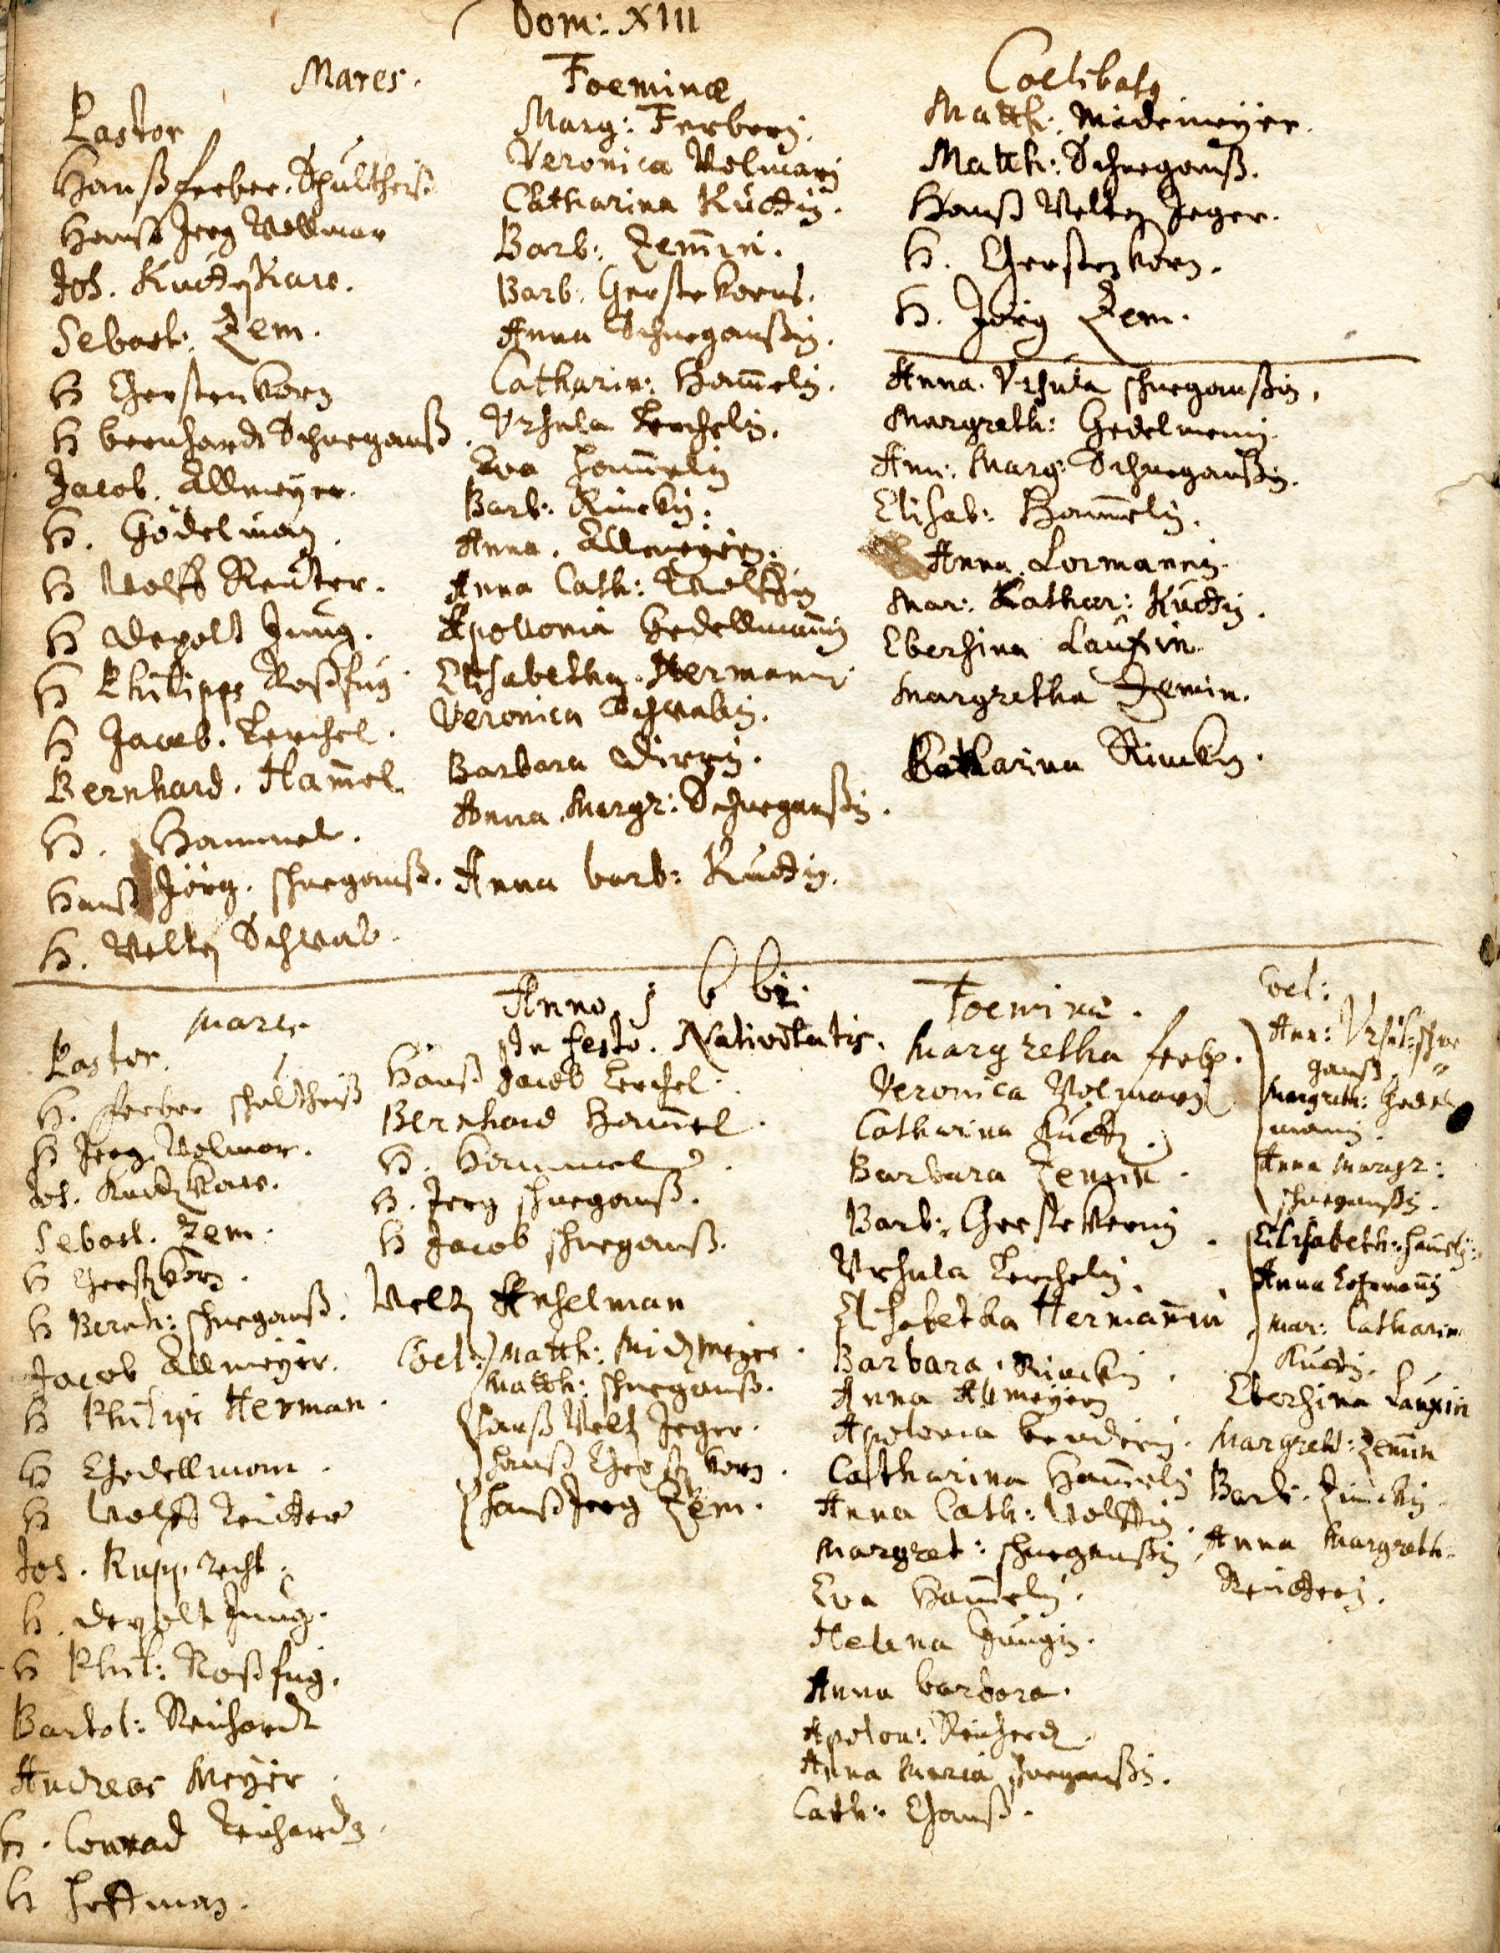 Dom: XIII
Mares.
Pastor
Hanß ferber. Schultheiß
Hanß Jerg Vollmar
Joh.
Sebast: Zem.
H Gerstenkorn
H bernhardt Schneganß
Jacob. Allmeyer.
H. Gödelman.
H Wolff Reutter.
H Depolt Jung.
H Philipps Roßfug
H Jacob. Lerchel.
Bernhard. Ham̄el
H. Hammel.
Hanß Jörg. schneganß.
H. Velten Schwab.
Foeminæ
Marg: Ferberin.
Veronica Volmarin
Catharina Küchin.
Barb: Zem̄in.
Barb: Gerstekorns.
Anna Schneganßin.
Catharin: Ham̄elin.
Vrsula Lerchelin.
Eva Ham̄elin
Barb: Rinckin.
Anna. Allmeyerin.
Anna Cath: Wolffin
Apollonia Gedellman̄in
Elisabetha. Herman̄in
Veronica Schwabin.
Barbara
Anna Margr: Schneganßin.
Anna barb: Küchin.
Coelibatq
Matth: Midemeyer.
Matth: Schneganß.
Hanß Velten Jeger.
H. Gersten korn.
H. Jörg Zem.
Anna. Vrsula schneganßin.
Margreth: Gedelmenin.
Ann: Marg: Schneganßin.
Elisab: Hammelin.
Anna. Lormannin.
Mar: Kathar: Küchin.
Ebersina Lauxin
Margretha Zemin.
Katharina Rinckin.
Anno 1662.
In festo. Nativitatis.
Mares.
Pastor.
H. ferber schultheiß
H Jerg. Volmar.
Joh.
Sebast. Zem.
H Gerstenkorn.
H Bernh: schneganß.
Jacob Allmeyer.
H Philips Herman.
H Gedellman.
H Wolff Reutter
Joh. Rupprecht.
H. Depolt Jung.
H Phil: Roßfug.
Bartol: Reichardt
Andreas Meyer
H. Conrad Reichardt.
H Hoffman.
Hanß Jacob Lerchel.
Bernhard Ham̄el.
H. Hammel.
H. Jerg schneganß.
H Jacob schneganß.
Velten Anselman
Coel: Matth: Midemeyer.
Matth: schneganß.
Hanß Velten Jeger.
Hanß Gersten korn.
Hanß Jerg Zem.
Foeminæ.
Margretha ferberin.
Veronica Volmarin
Catharina Küchin.
Barbara Zemin.
Barb: Gerstekornin.
Vrsula Lerchelin.
Elisabetha Herman̄in
Barbara. Rinckin.
Anna Allmeyerin
Apolonia
Catharina Ham̄elin
Anna Cath: Wolffin.
Margret: schneganßin
Eva Ham̄elin.
Helena Jungin.
Anna barbara.
Apolon: Reicherdt.
Anna Maria schneganßin.
Cath: Ganß.
Coel:
Ann: Vrsul: schne
ganß.
Margreth: Gedel
manin.
Anna Margr:
schneganßin.
Elisabeth: Ham̄elin.
Anna Lohrman̄in
Mar: Catharin
Küchin.
Ebersina Lauxin
Margreth: Zem̄in
Barb: Rinckin.
Anna Margreth.
Reutterin.